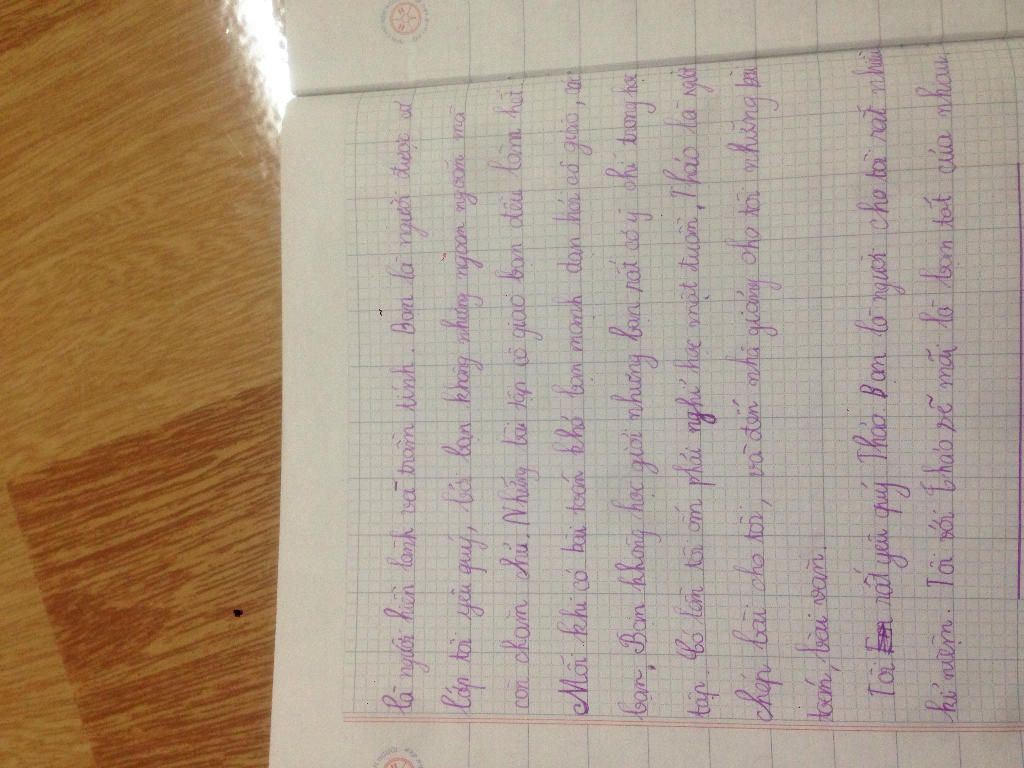 là người hiền lành và trầm tính. Bạn là người được cả
lớp tôi yêu quý, bởi bạn không những ngoan ngoãn mà
còn chăm chỉ. Những bài tập cô giao bạn đều làm hết
Mỗi khi có bài toán khó bạn mạnh dạn hỏi cô giáo, các
bạn. Bạn không học giỏi nhưng bạn rất có ý chí trong học
tập. Có lần tôi ốm phải nghỉ học một tuần, Thảo là người
chép bài cho tôi, và đến nhà giảng cho tôi những bài
toán, bài văn.
Tôi rất yêu quý Thảo. Bạn là người cho tôi rất nhiều
kỉ niệm. Tôi với Thảo sẽ mãi là bạn tốt của nhau